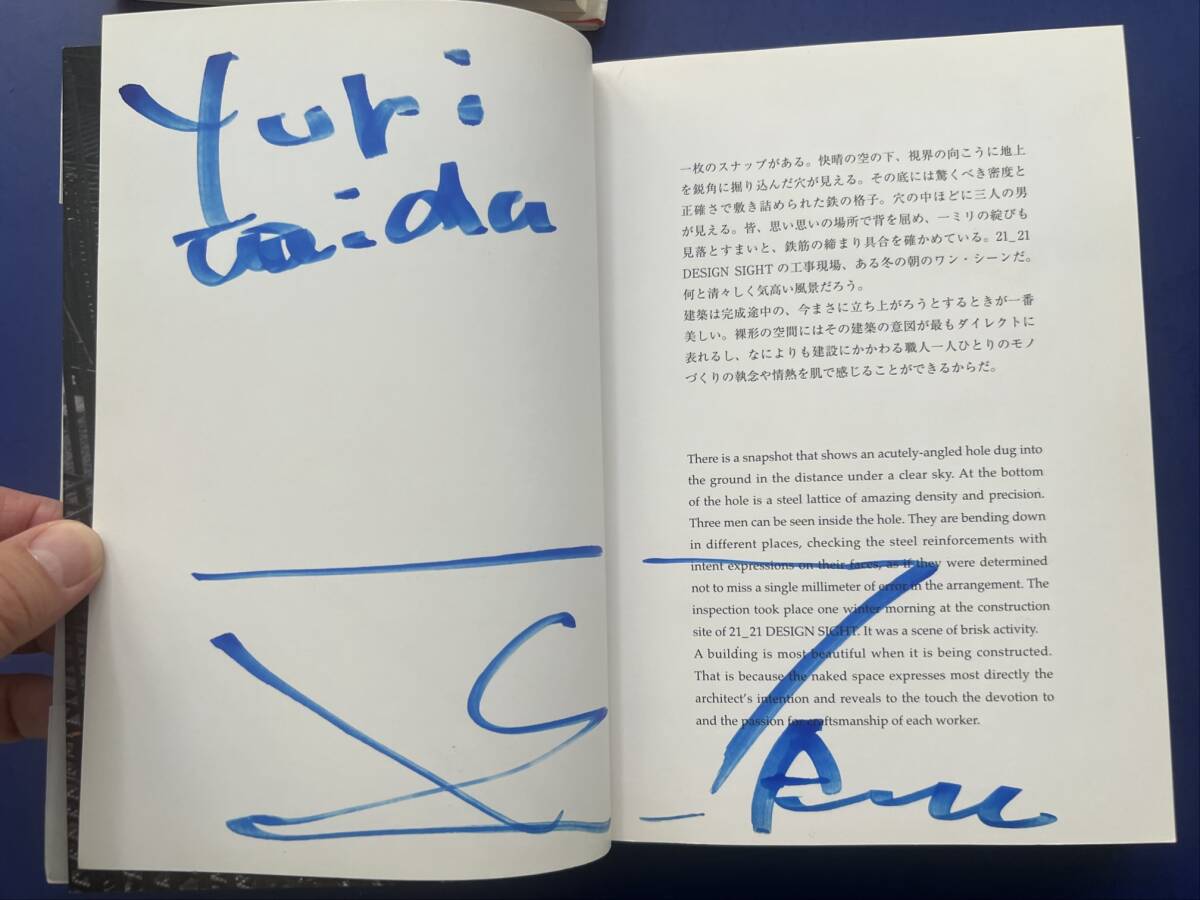 Yuri
taida
一枚のスナップがある。快晴の空の下、視界の向こうに地上
を鋭角に掘り込んだ穴が見える。その底には驚くべき密度と
正確さで敷き詰められた鉄の格子。穴の中ほどに三人の男
が見える。皆、思い思いの場所で背を屈め、一ミリの綻びも
見落とすまいと、鉄筋の締まり具合を確かめている。21_21
DESIGN SIGHTの工事現場、ある冬の朝のワン・シーンだ。
何と清々しく気高い風景だろう。
建築は完成途中の、今まさに立ち上がろうとするときが一番
美しい。裸形の空間にはその建築の意図が最もダイレクトに
表れるし、なによりも建設にかかわる職人一人ひとりのモノ
づくりの執念や情熱を肌で感じることができるからだ。
There is a snapshot that shows an acutely-angled hole dug into
the ground in the distance under a clear sky. At the bottom
of the hole is a steel lattice of amazing density and precision.
Three men can be seen inside the hole. They are bending down
in different places, checking the steel reinforcements with
intent expressions on their faces, as if they were determined
not to miss a single millimeter of error in the arrangement. The
inspection took place one winter morning at the construction
site of 21_21 DESIGN SIGHT. It was a scene of brisk activity.
A building is most beautiful when it is being constructed.
That is because the naked space expresses most directly the
architect's intention and reveals to the touch the devotion to
and the passion for craftsmanship of each worker.